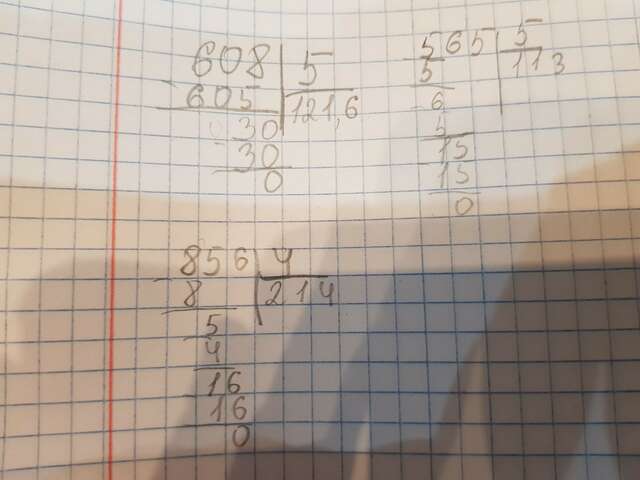 608 5
605 121,6
30
30
0
565 5
5 113
6
5
15
15
0
856 4
8 214
5
4
16
16
0